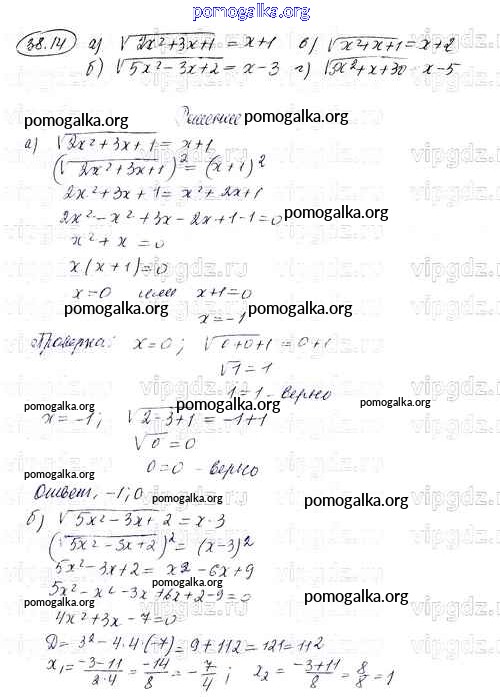 pomogalka.org
38.14 а) √2x²+3x+1 = x+1 в) √x²+x+1 = x+2
б) √5x²-3x+2 = x-3 г) √3x²+x+30 x-5
Решение
pomogalka.org pomogalka.org
а) √2x²+3x+1 = x+1
(√2x²+3x+1)² = (x+1)²
2x²+3x+1 = x²+2x+1
2x²-x²+3x-2x+1-1=0 pomogalka.org
x²+x=0
x(x+1)=0
x=0 или x+1=0
pomogalka.org x=-1 pomogalka.org
Проверка: x=0; √0+0+1=0+1
√1=1
1=1-верно
pomogalka.org pomogalka.org
x=-1; √2-3+1=-1+1
√0=0
0=0-верно
pomogalka.org
Ответ, -1; 0 pomogalka.org pomogalka.org
б) √5x²-3x+2=x-3
(√5x²-3x+2)²=(x-3)²
5x²-3x+2=x²-6x+9
5x²-x²-3x+6x+2-9=0
pomogalka.org pomogalka.org
4x²+3x-7=0
D=3²-4·4·(-7)=9+112=121=11²
x₁=-3-11/2·4=-14/8=-7/4; x₂=-3+11/8=8/8=1
vipgdz.ru